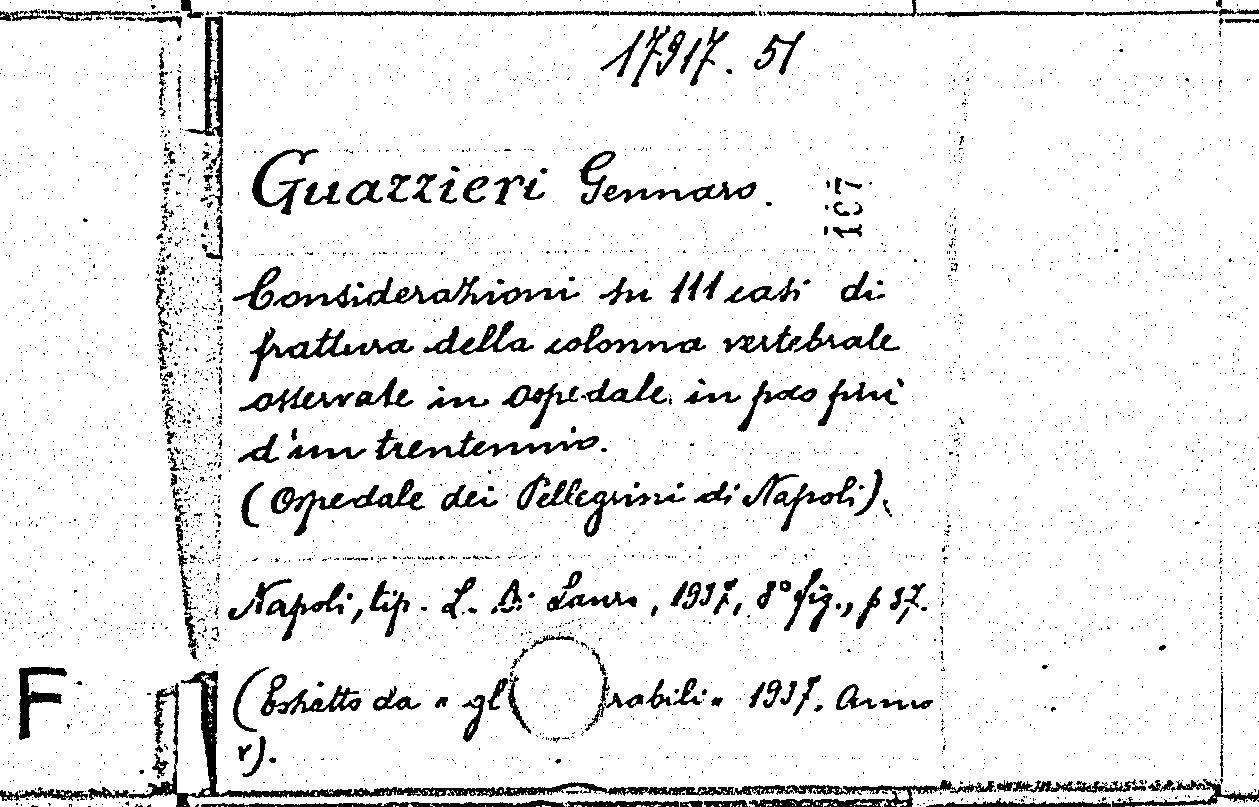 17917. 51
Guazzieri Gennaro.
107
Considerazioni su 111 casi di
frattura della colonna vertebrale
osservate in ospedale in poco più
d'un trentennio.
(Ospedale dei Pellegrini di Napoli).
Napoli, tip. L. Di Lauro, 1937, 8° fig., p 37.
F
(Estratto da « gl rabili » 1937. Anno
V).